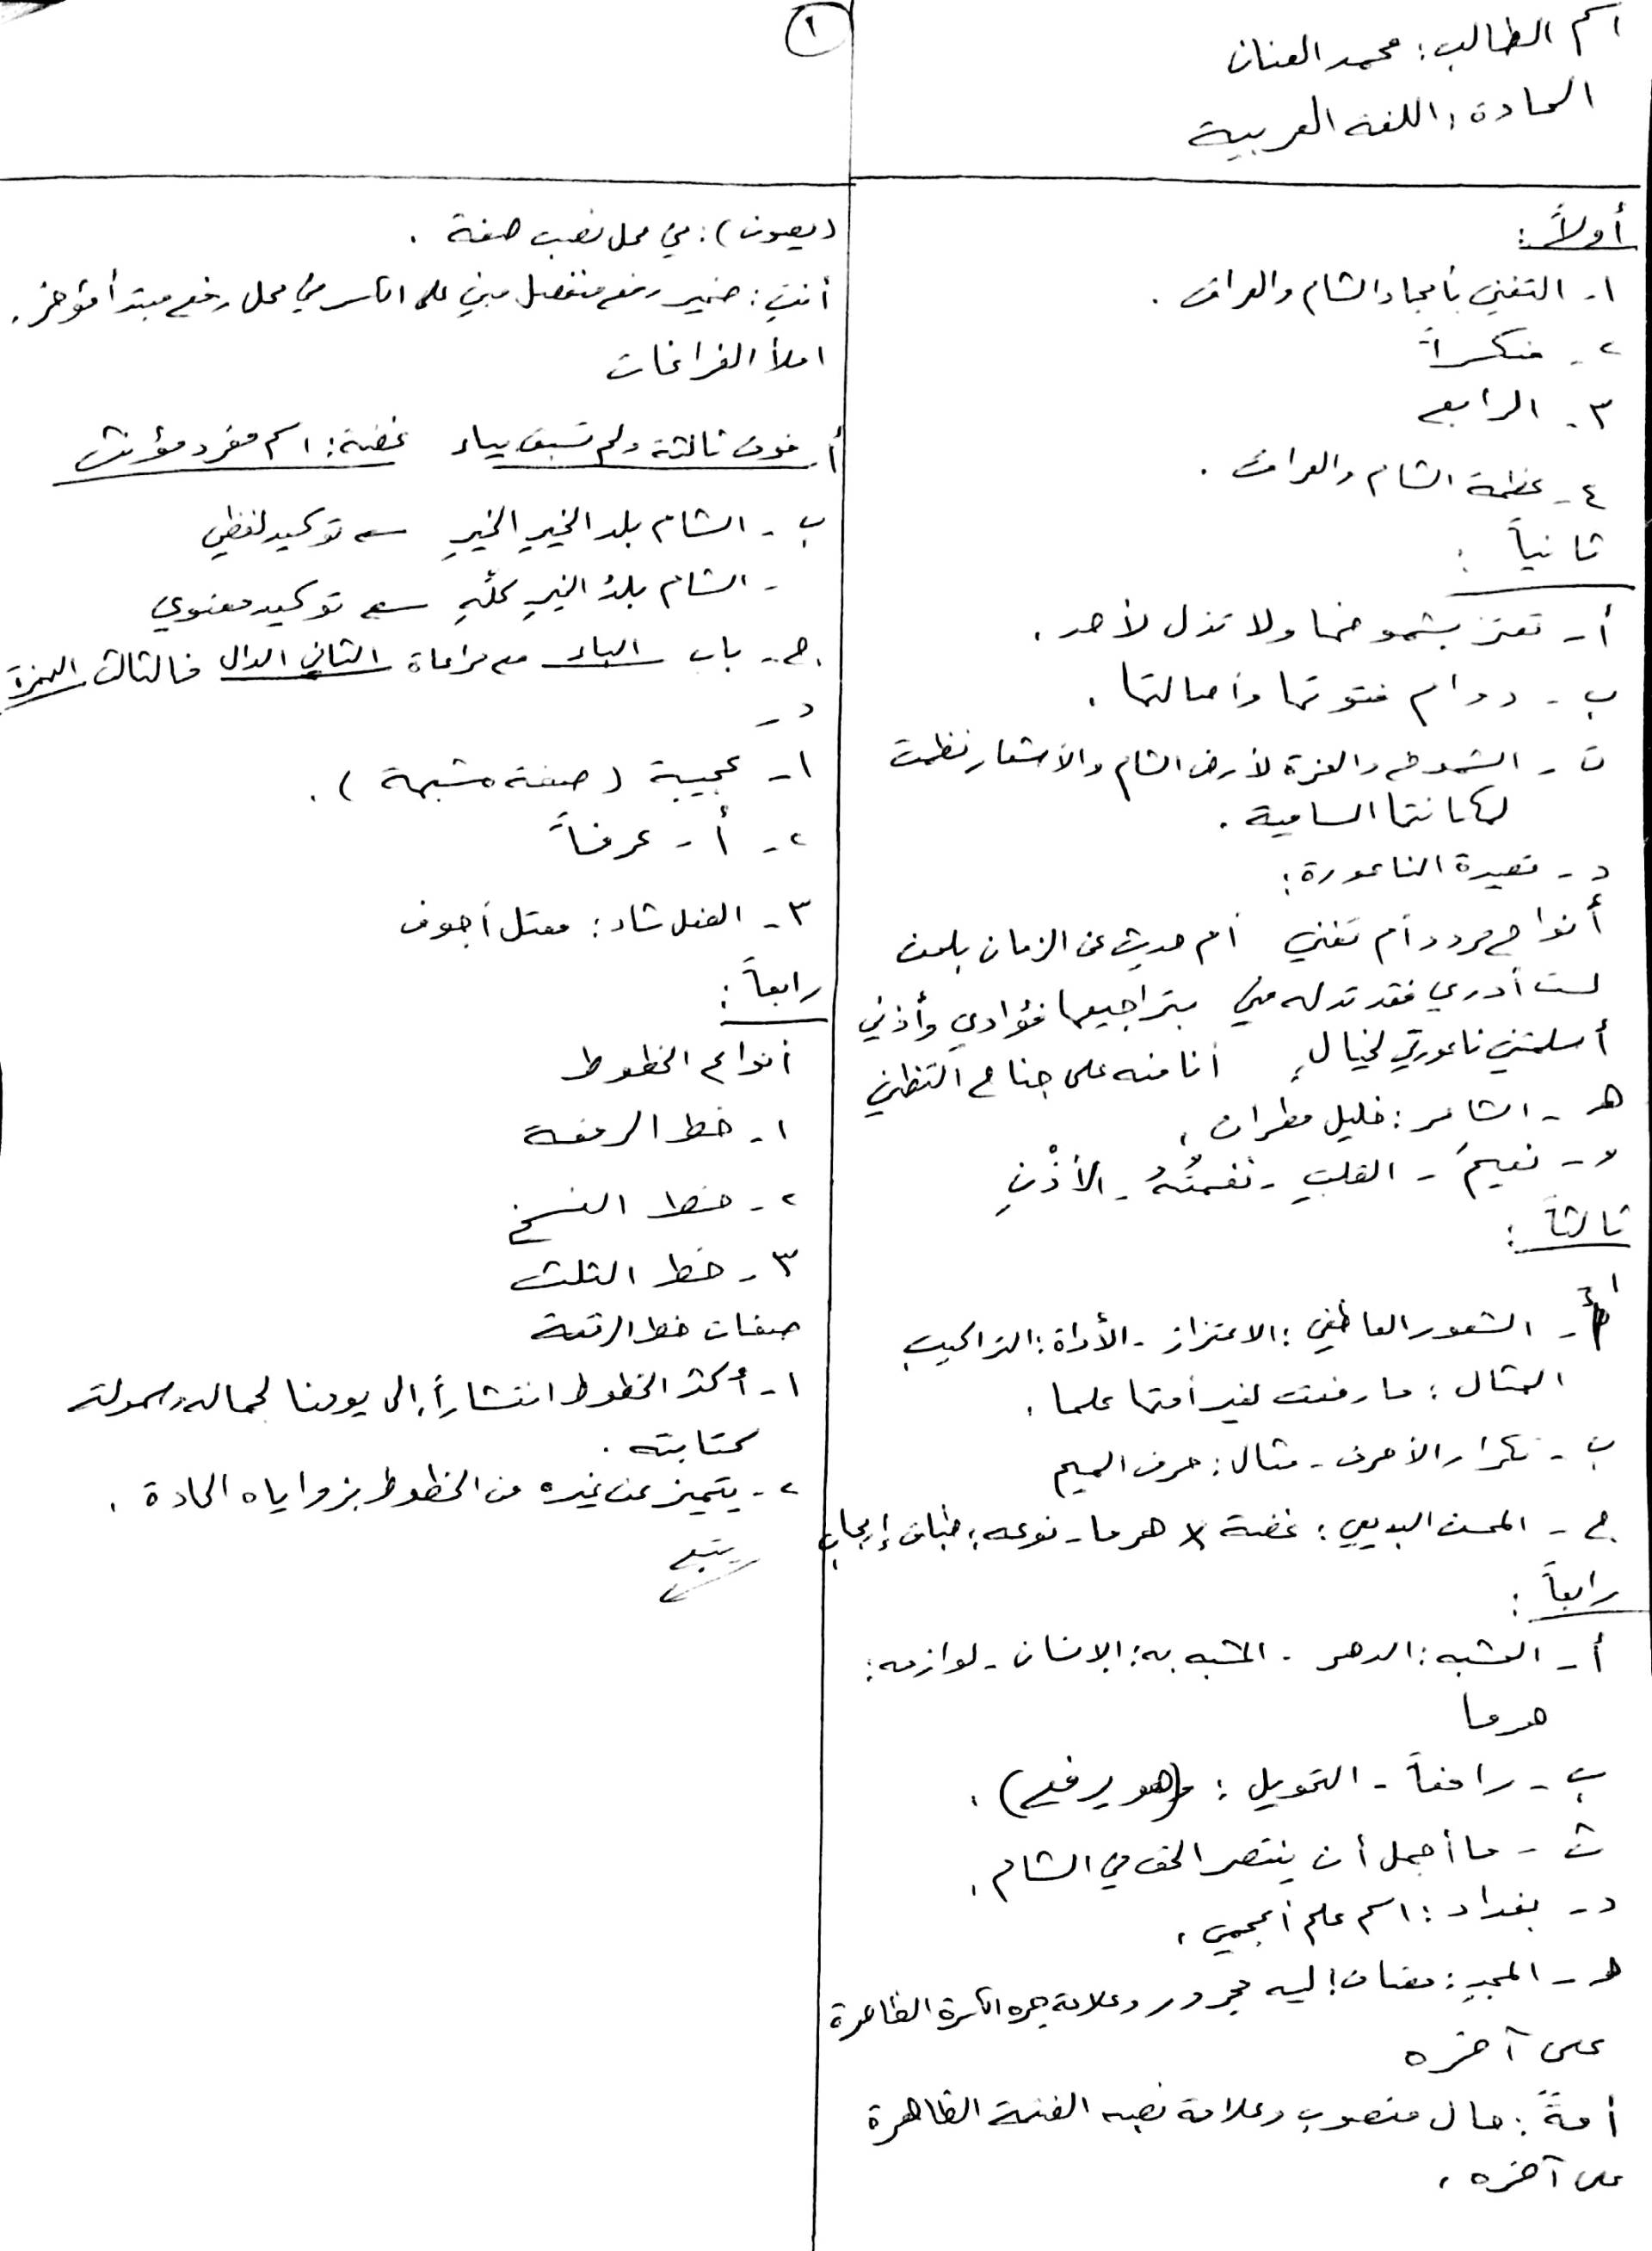 ١
اسم الطالب: محمد العنان
المادة: اللغة العربية
أولاً:
١- التغني بأمجاد الشام والعراق.
٢- منكسراً
٣- الرابع
٤- عظمة الشام والعراق.
ثانياً:
أ- تعتز بشموخها ولا تذل لأحد.
ب- دوام فتوتها وأصالتها.
ت- الشموخ والعزة لأرض الشام والأشعار نظمت
لمكانتها السامية.
د- قصيدة الناعورة:
أنواح مردد أم تغني أم حديث عن الزمان بلحن
لست أدري فقد تدله مني بتراجيعها فؤادي وأذني
أسلمتني ناعورتي لخيالٍ أنا منه على جناح التظني
هـ- الشاعر: خليل مطران.
و- نعيمَ - القلبِ - نغمتُهُ - الأذْنِ
ثالثاً:
١
أ- الشعور العاطفي: الاعتزاز - الأداة: التراكيب
المثال: ما رفعت لغير أمتها علما.
ب- تكرار الأحرف - مثال: حرف الميم
ج- المحسن البديعي: غضة × هرما - نوعه: طباق إيجاب
رابعاً:
أ- المشبه: الدهر - المشبه به: الإنسان - لوازمه:
هرما
ب- رافعاً - التحويل: (هو يرفع).
ث- ما أجمل أن ينتصر الحق في الشام.
د- بغداد: اسم علم أعجمي.
هـ- المجدِ: مضاف إليه مجرور وعلامة جره الكسرة الظاهرة
على آخره
أمةً: حال منصوب وعلامة نصبه الفتحة الظاهرة
على آخره.
(يصون): في محل نصب صفة.
أنتِ: ضمير رفع منفصل مبني على الكسر في محل رفع مبتدأ مؤخر.
املأ الفراغات
أ- فوق ثالثة ولم تسبق بياء غضة: اسم مفرد مؤنث
ب- الشام بلد الخيرِ الخيرِ توكيد لفظي
- الشام بلدُ الخيرِ كلِّهِ توكيد معنوي
ج- باب الباء مع مراعاة الثاني الدال فالثالث الهمزة
د-
١- عجيبة (صفة مشبهة).
٢- أ- عرفاً
٣- الفعل شاد: معتل أجوف
رابعاً:
أنواع الخطوط
١- خط الرقعة
٢- خط النسخ
٣- خط الثلث
صفات خط الرقعة
١- أكثر الخطوط انتشاراً إلى يومنا لجماله وسهولة
كتابته.
٢- يتميز عن غيره من الخطوط بزواياه الحادة.
يتبع